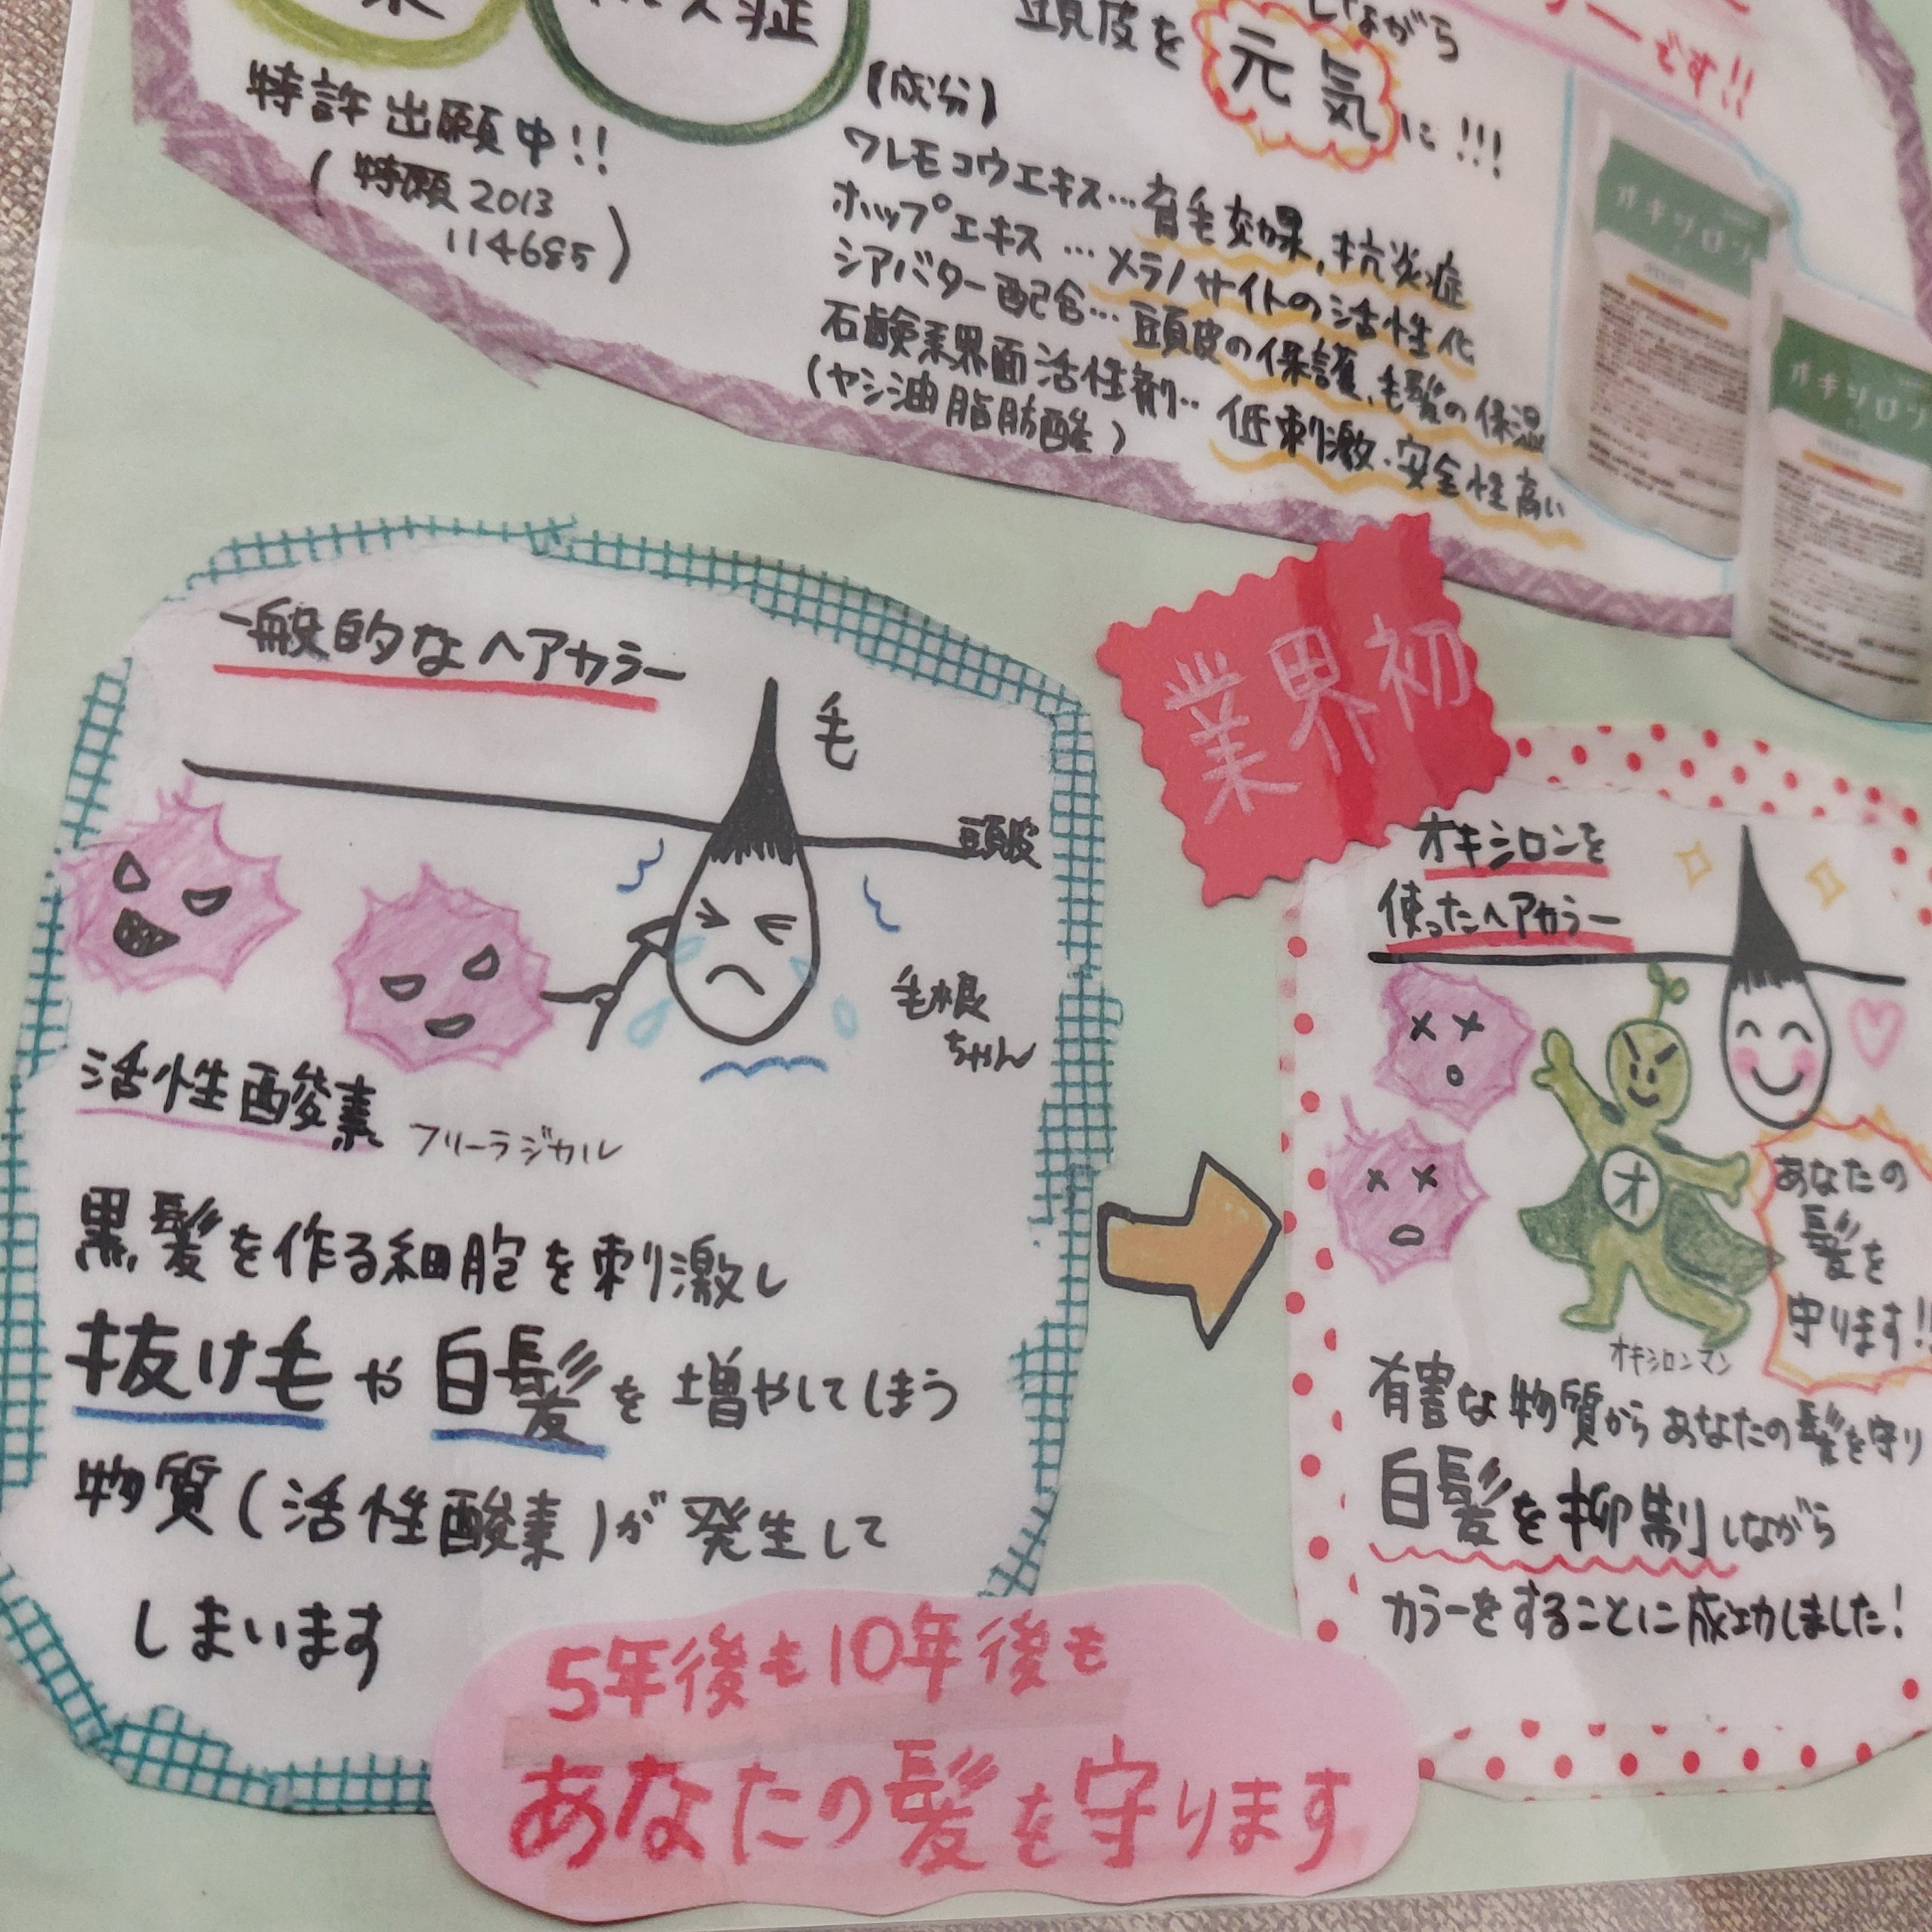 症
特許出願中!!
(特願2013
114685)
しながら
頭皮を元気に!!!
ーです!!
【成分】
ワレモコウエキス…育毛効果、抗炎症
ホップエキス…メラノサイトの活性化
シアバター配合…頭皮の保護、毛髪の保湿
石鹸系界面活性剤…低刺激・安全性高い
(ヤシ油脂肪酸)
オキシロン
オキシロン
一般的なヘアカラー
毛
頭皮
毛根
ちゃん
活性酸素 フリーラジカル
黒髪を作る細胞を刺激し
抜け毛や白髪を増やしてしまう
物質(活性酸素)が発生して
しまいます
業界初
オキシロンを
使ったヘアカラー
オ
オキシロンマン
あなたの
髪を
守ります!!
有害な物質からあなたの髪を守り
白髪を抑制しながら
カラーをすることに成功しました!
5年後も10年後も
あなたの髪を守ります